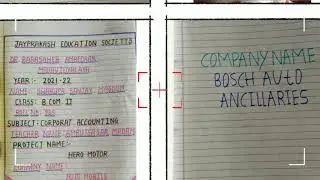 JAYPRAKASH EDUCATION SOCIETY'S
DR. BABASAHEB AMBEDKAR
MAHAVIDYALAYA
YEAR:- 2021-22
NAME: SANJAY
CLASS: B.COM II
ROLL NO:
SUBJECT: CORPORAT ACCOUNTING
TEACHER NAME: MADAM
PROJECT NAME:-
HERO MOTOR
COMPANY NAME:
COMPANY NAME
BOSCH AUTO
ANCILLARIES